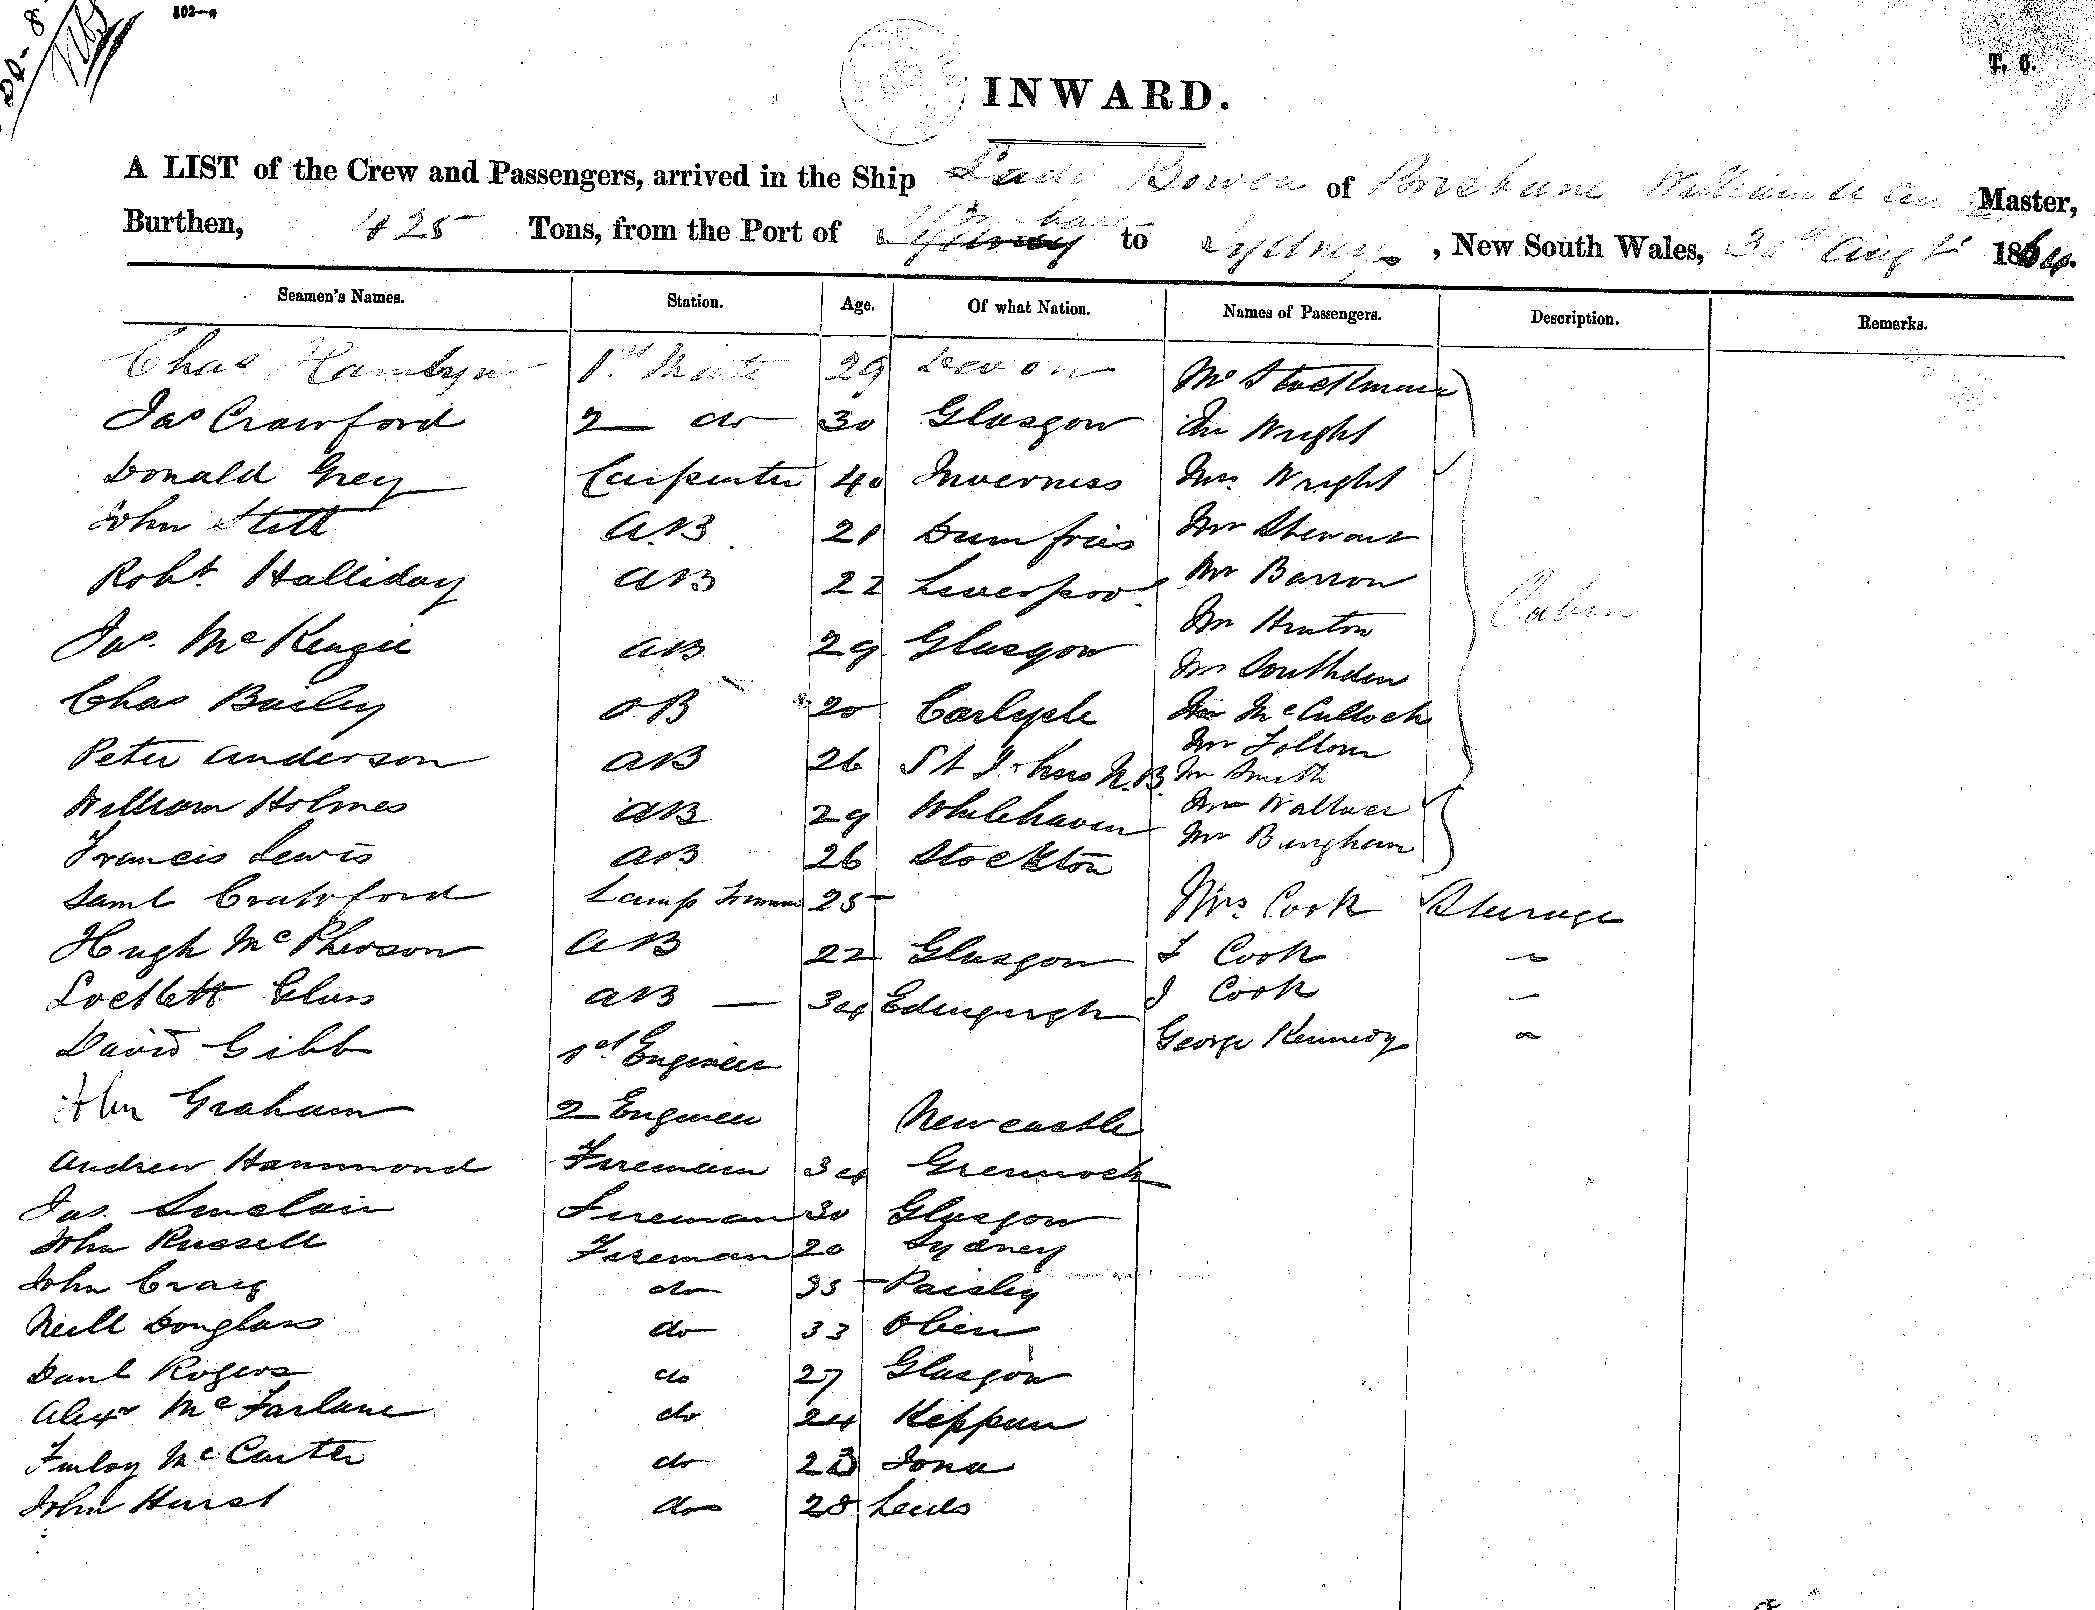 102—a
T. 6.
INWARD.
A LIST of the Crew and Passengers, arrived in the Ship Lady Bowen of Brisbane William Master,
Burthen, 425 Tons, from the Port of to Sydney, New South Wales, 30th Augt 1864.
Seamen's Names. Station. Age. Of what Nation. Names of Passengers. Description. Remarks.
Chas Hamlyn 1st Mate 29 Devon Mr
Jas Crawford 2 do 30 Glasgow Mr Wright
Donald Grey Carpenter 40 Inverness Mrs Wright
John Stitt A.B 21 Dumfries Mr Stewart
Robt Halliday AB 22 Liverpool Mr Barron
Cabin
Jas. McKenzie AB 29 Glasgow Mr Hunton
Mr Southden
Chas Bailey OB 20 Carlysle McCulloch
Mr Follom
Peter Anderson AB 26 St Johns N.B. Mr Smith
William Holmes AB 29 Whitehaven Mrs Wallace
Francis Lewis AB 26 Stockton Mr Bingham
Saml Crawford Lamp Trimmer 25 Mrs Cook Steerage
Hugh McPherson AB 22 Glasgow F Cook "
Locklett Glass AB — 34 Edingurgh J Cook "
David Gibb 1st Engineer George Kennedy "
John Graham 2 Engineer Newcastle
Andrew Hammond Fireman 34 Greennock
Jas. Sinclair Fireman 30 Glasgow
John Russell Fireman 20 Sydney
John Craig do 35 Paisley
Neill Douglass do 33 Oben
Danl Rogers do 27 Glasgow
Alexr McFarlane do 24 Kippen
Finlay McCarter do 23 Iona
John Hurst do 28 Leeds